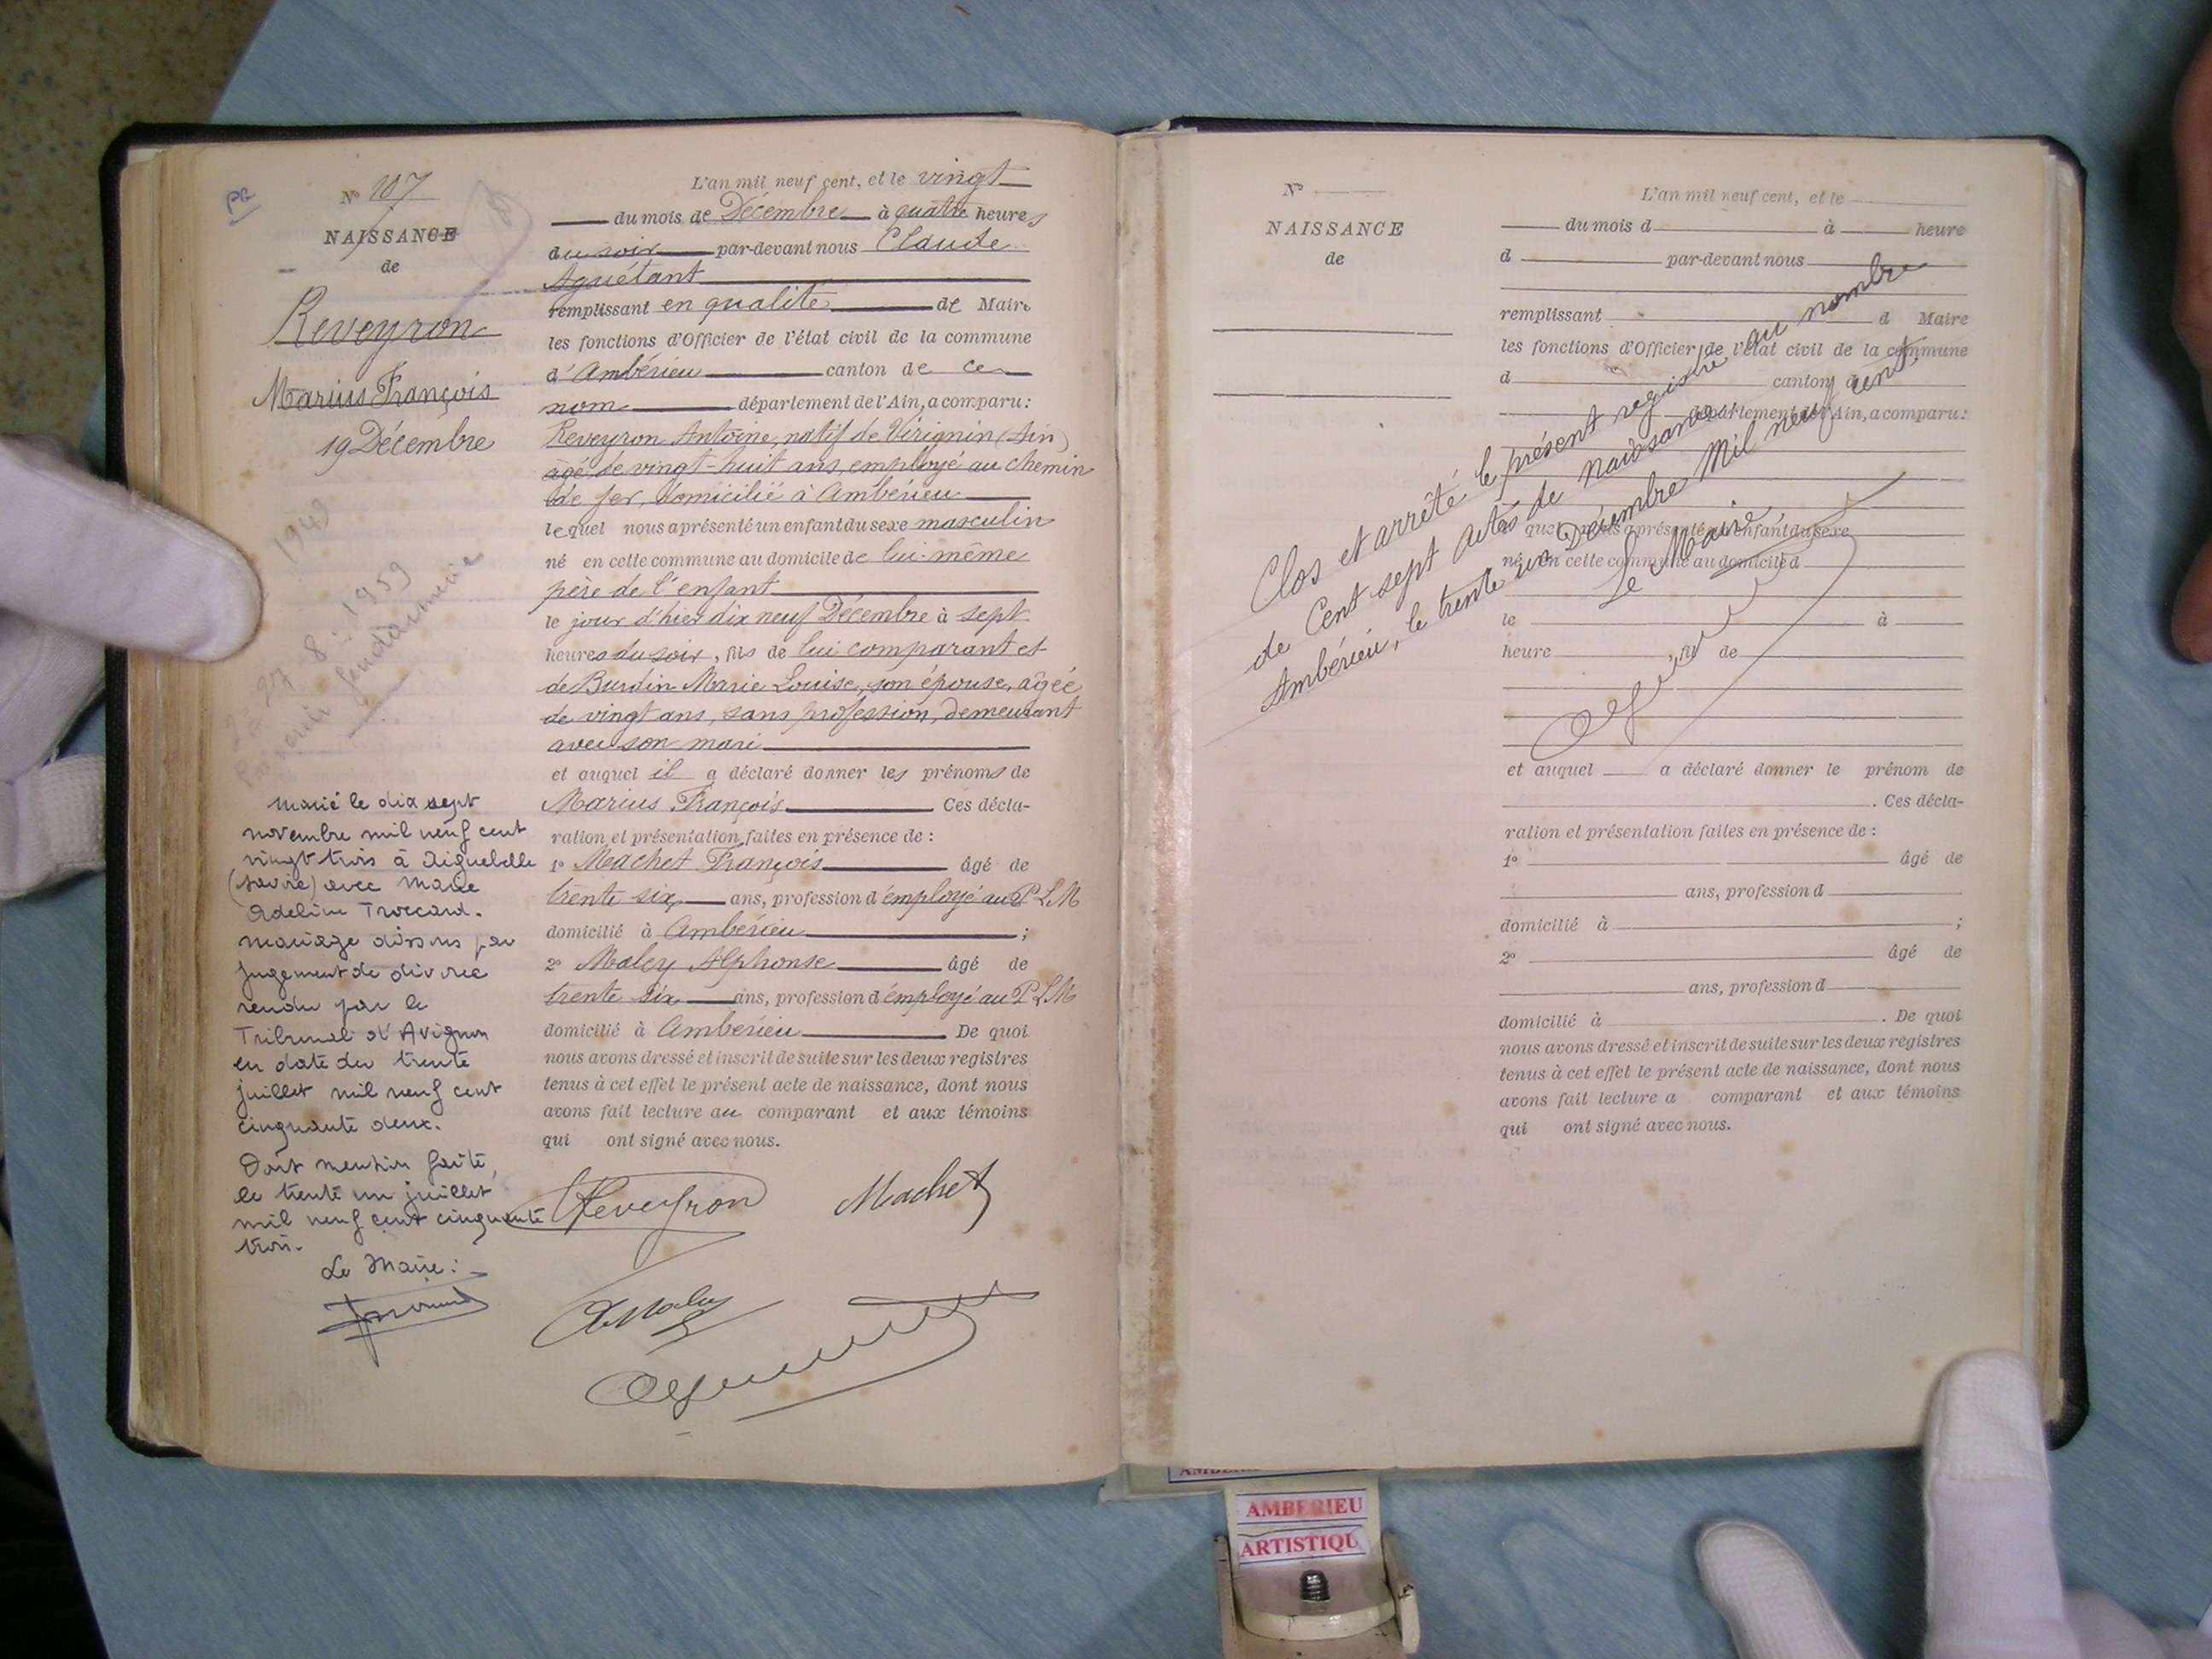 PG
N° 107
NAISSANCE
de
Reveyron
Marius François
19 Décembre
1949
27 8 : 1959
gendarmerie
Marié le dix sept
novembre mil neuf cent
vingt trois à Aiguebelle
(Savoie) avec Marie
Adeline Troccard.
mariage dissous par
jugement de divorce
rendu par le
Tribunal d'Avignon
en date du trente
juillet mil neuf cent
cinquante deux.
Dont mention faite,
le trente un juillet
mil neuf cent cinquante
trois.
Le Maire :
L'an mil neuf cent, et le vingt
du mois de Décembre à quatre heures
du soir par-devant nous Claude
Aguétant
remplissant en qualité de Maire
les fonctions d'Officier de l'état civil de la commune
d'Ambérieu canton de ce
nom département de l'Ain, a comparu :
Reveyron Antoine, natif de Virignin (Ain)
âgé de vingt-huit ans, employé au chemin
de fer, domicilié à Ambérieu
lequel nous a présenté un enfant du sexe masculin
né en cette commune au domicile de lui-même
père de l'enfant
le jour d'hier dix neuf Décembre à sept
heures du soir, fils de lui comparant et
de Burdin Marie Louise, son épouse, âgée
de vingt ans, sans profession, demeurant
avec son mari
et auquel il a déclaré donner les prénoms de
Marius François Ces décla-
ration et présentation faites en présence de :
1° Machet François âgé de
trente six ans, profession d'employé au P L M
domicilié à Ambérieu ;
2° Maley Alphonse âgé de
trente six ans, profession d'employé au P L M
domicilié à Ambérieu De quoi
nous avons dressé et inscrit de suite sur les deux registres
tenus à cet effet le présent acte de naissance, dont nous
avons fait lecture au comparant et aux témoins
qui ont signé avec nous.
Reveyron Machet
A Maley
N°
NAISSANCE
de
L'an mil neuf cent, et le
du mois d à heure
d par-devant nous
remplissant d Maire
les fonctions d'Officier de l'état civil de la commune
d canton d
département de l'Ain, a comparu :
quel nous a présenté un enfant du sexe
né en cette commune au domicile d
le à
heure , fil de
et auquel a déclaré donner le prénom de
. Ces décla-
ration et présentation faites en présence de :
1° âgé de
ans, profession d
domicilié à ;
2° âgé de
ans, profession d
domicilié à . De quoi
nous avons dressé et inscrit de suite sur les deux registres
tenus à cet effet le présent acte de naissance, dont nous
avons fait lecture a comparant et aux témoins
qui ont signé avec nous.
Clos et arrêté le présent registre au nombre
de Cent sept Actes de naissance
Ambérieu, le trente un Décembre Mil neuf cent.
Le Maire
AMBERIEU
ARTISTIQU